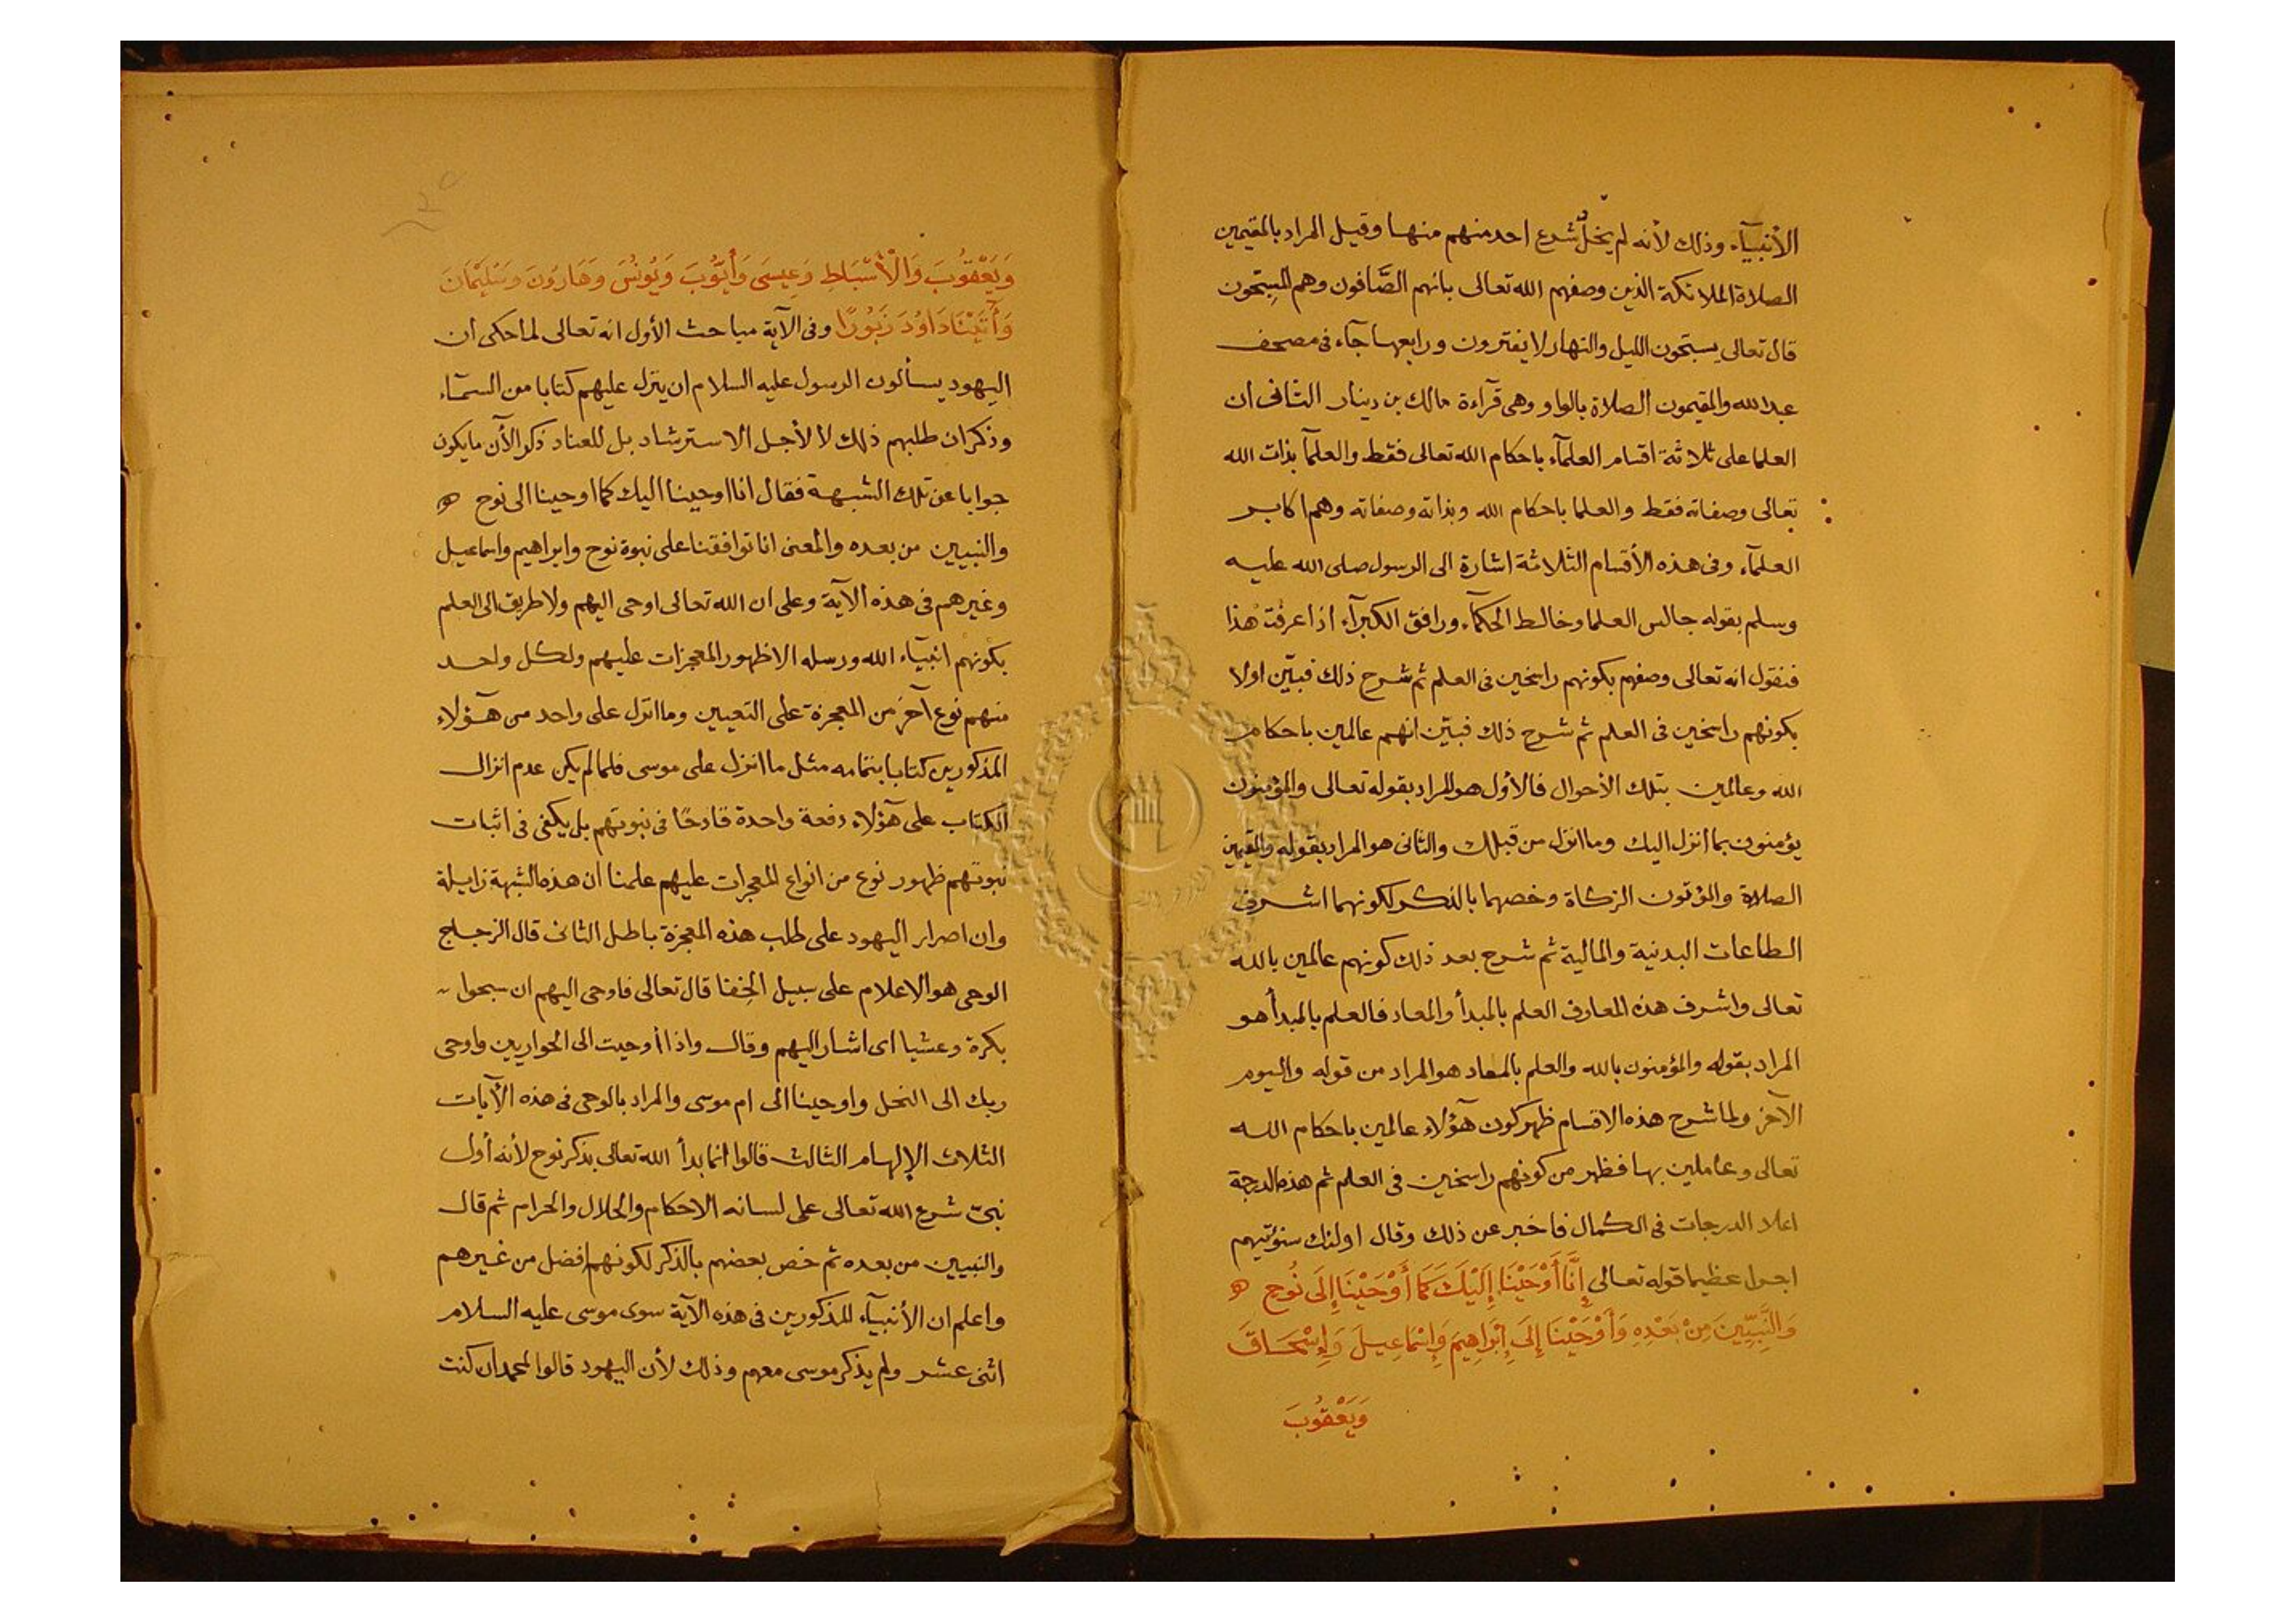 الأنبيآء وذلك لأنه لم يخل شرع احد منهم منها وقيل المراد بالمقيمين
الصلاة الملائكة الذين وصفهم الله تعالى بانهم الصَّافون وهم المسبّحون
قال تعالى يسبّحون الليل والنهار لا يفترون ورابعها جآء فى مصحف
عبد الله والمقيمون الصلاة بالواو وهى قرآءة مالك بن دينار الثانى ان
العلما على ثلاثة اقسام العلمآء باحكام الله تعالى فقط والعلمآ بذات الله
تعالى وصفاته فقط والعلما باحكام الله وبذاته وصفاته وهم اكابر
العلمآء وفى هذه الأقسام الثلاثة اشارة الى الرسول صلى الله عليه
وسلم بقوله جالس العلما وخالط الحكمآء ورافق الكبرآء اذا عرفت هذا
فنقول انه تعالى وصفهم بكونهم راسخين فى العلم ثم شرح ذلك فبيّن اولا
بكونهم راسخين فى العلم ثم شرح ذلك فبيّن انهم عالمين باحكام
الله وعالمين بتلك الأحوال فالأول هو المراد بقوله تعالى والمؤمنون
يؤمنون بما أنزل اليك وما انزل من قبلك والثانى هو المراد بقوله والمقيمين
الصلاة والمؤتون الزكاة وخصهما بالذكر لكونهما اشرف
الطاعات البدنية والمالية ثم شرح بعد ذلك كونهم عالمين بالله
تعالى واشرف هذه المعارف العلم بالمبدأ والمعاد فالعلم بالمبدأ هو
المراد بقوله والمؤمنون بالله والعلم بالمعاد هو المراد من قوله واليوم
الآخر ولما شرح هذه الاقسام ظهر كون هؤلاء عالمين باحكام الله
تعالى وعاملين بها فظهر من كونهم راسخين فى العلم ثم هذه الدرجة
اعلا الدرجات فى الكمال فاخبر عن ذلك وقال اولئك سنؤتيهم
اجرا عظيما قوله تعالى إِنَّا أَوْحَيْنَا إِلَيْكَ كَمَا أَوْحَيْنَا إِلَى نُوحٍ
وَالنَّبِيِّينَ مِنْ بَعْدِهِ وَأَوْحَيْنَا إِلَى إِبْرَاهِيمَ وَإِسْمَاعِيلَ وَإِسْحَاقَ
وَيَعْقُوبَ
وَيَعْقُوبَ وَالْأَسْبَاطِ وَعِيسَى وَأَيُّوبَ وَيُونُسَ وَهَارُونَ وَسُلَيْمَانَ
وَآتَيْنَا دَاوُدَ زَبُورًا وفى الآية مباحث الأول انه تعالى لما حكى ان
اليهود يسألون الرسول عليه السلام ان ينزل عليهم كتابا من السمآء
وذكر ان طلبهم ذلك لا لأجل الاسترشاد بل للعناد ذكر الآن ما يكون
جوابا عن تلك الشبهة فقال انا اوحينا اليك كما اوحينا الى نوح
والنبيين من بعده والمعنى انا توافقنا على نبوة نوح وابراهيم واسماعيل
وغيرهم فى هذه الآية وعلى ان الله تعالى اوحى اليهم ولا طريق الى العلم
بكونهم انبيآء الله ورسله الا ظهور المعجزات عليهم ولكل واحد
منهم نوع آخر من المعجزة على التعيين وما انزل على واحد من هؤلاء
المذكورين كتابا بتمامه مثل ما انزل على موسى فلما لم يكن عدم انزال
الكتاب على هؤلاء دفعة واحدة قادحًا فى نبوتهم بل يكفى فى اثبات
نبوتهم ظهور نوع من انواع المعجزات عليهم علمنا ان هذه الشبهة زايلة
وان اصرار اليهود على طلب هذه المعجزة باطل الثانى قال الزجاج
الوحى هو الاعلام على سبيل الخفا قال تعالى فاوحى اليهم ان سبحوا
بكرة وعشيا اى اشار اليهم وقال واذا أوحيت الى الحواريين واوحى
ربك الى النحل واوحينا الى ام موسى والمراد بالوحى فى هذه الآيات
الثلاث الإلهام الثالث قالوا انما بدأ الله تعالى بذكر نوح لأنه أول
نبىّ شرع الله تعالى على لسانه الاحكام والحلال والحرام ثم قال
والنبيين من بعده ثم خص بعضهم بالذكر لكونهم افضل من غيرهم
واعلم ان الأنبيآء المذكورين فى هذه الآية سوى موسى عليه السلام
اثنى عشر ولم يذكر موسى معهم وذلك لأن اليهود قالوا لمحمد ان كنت